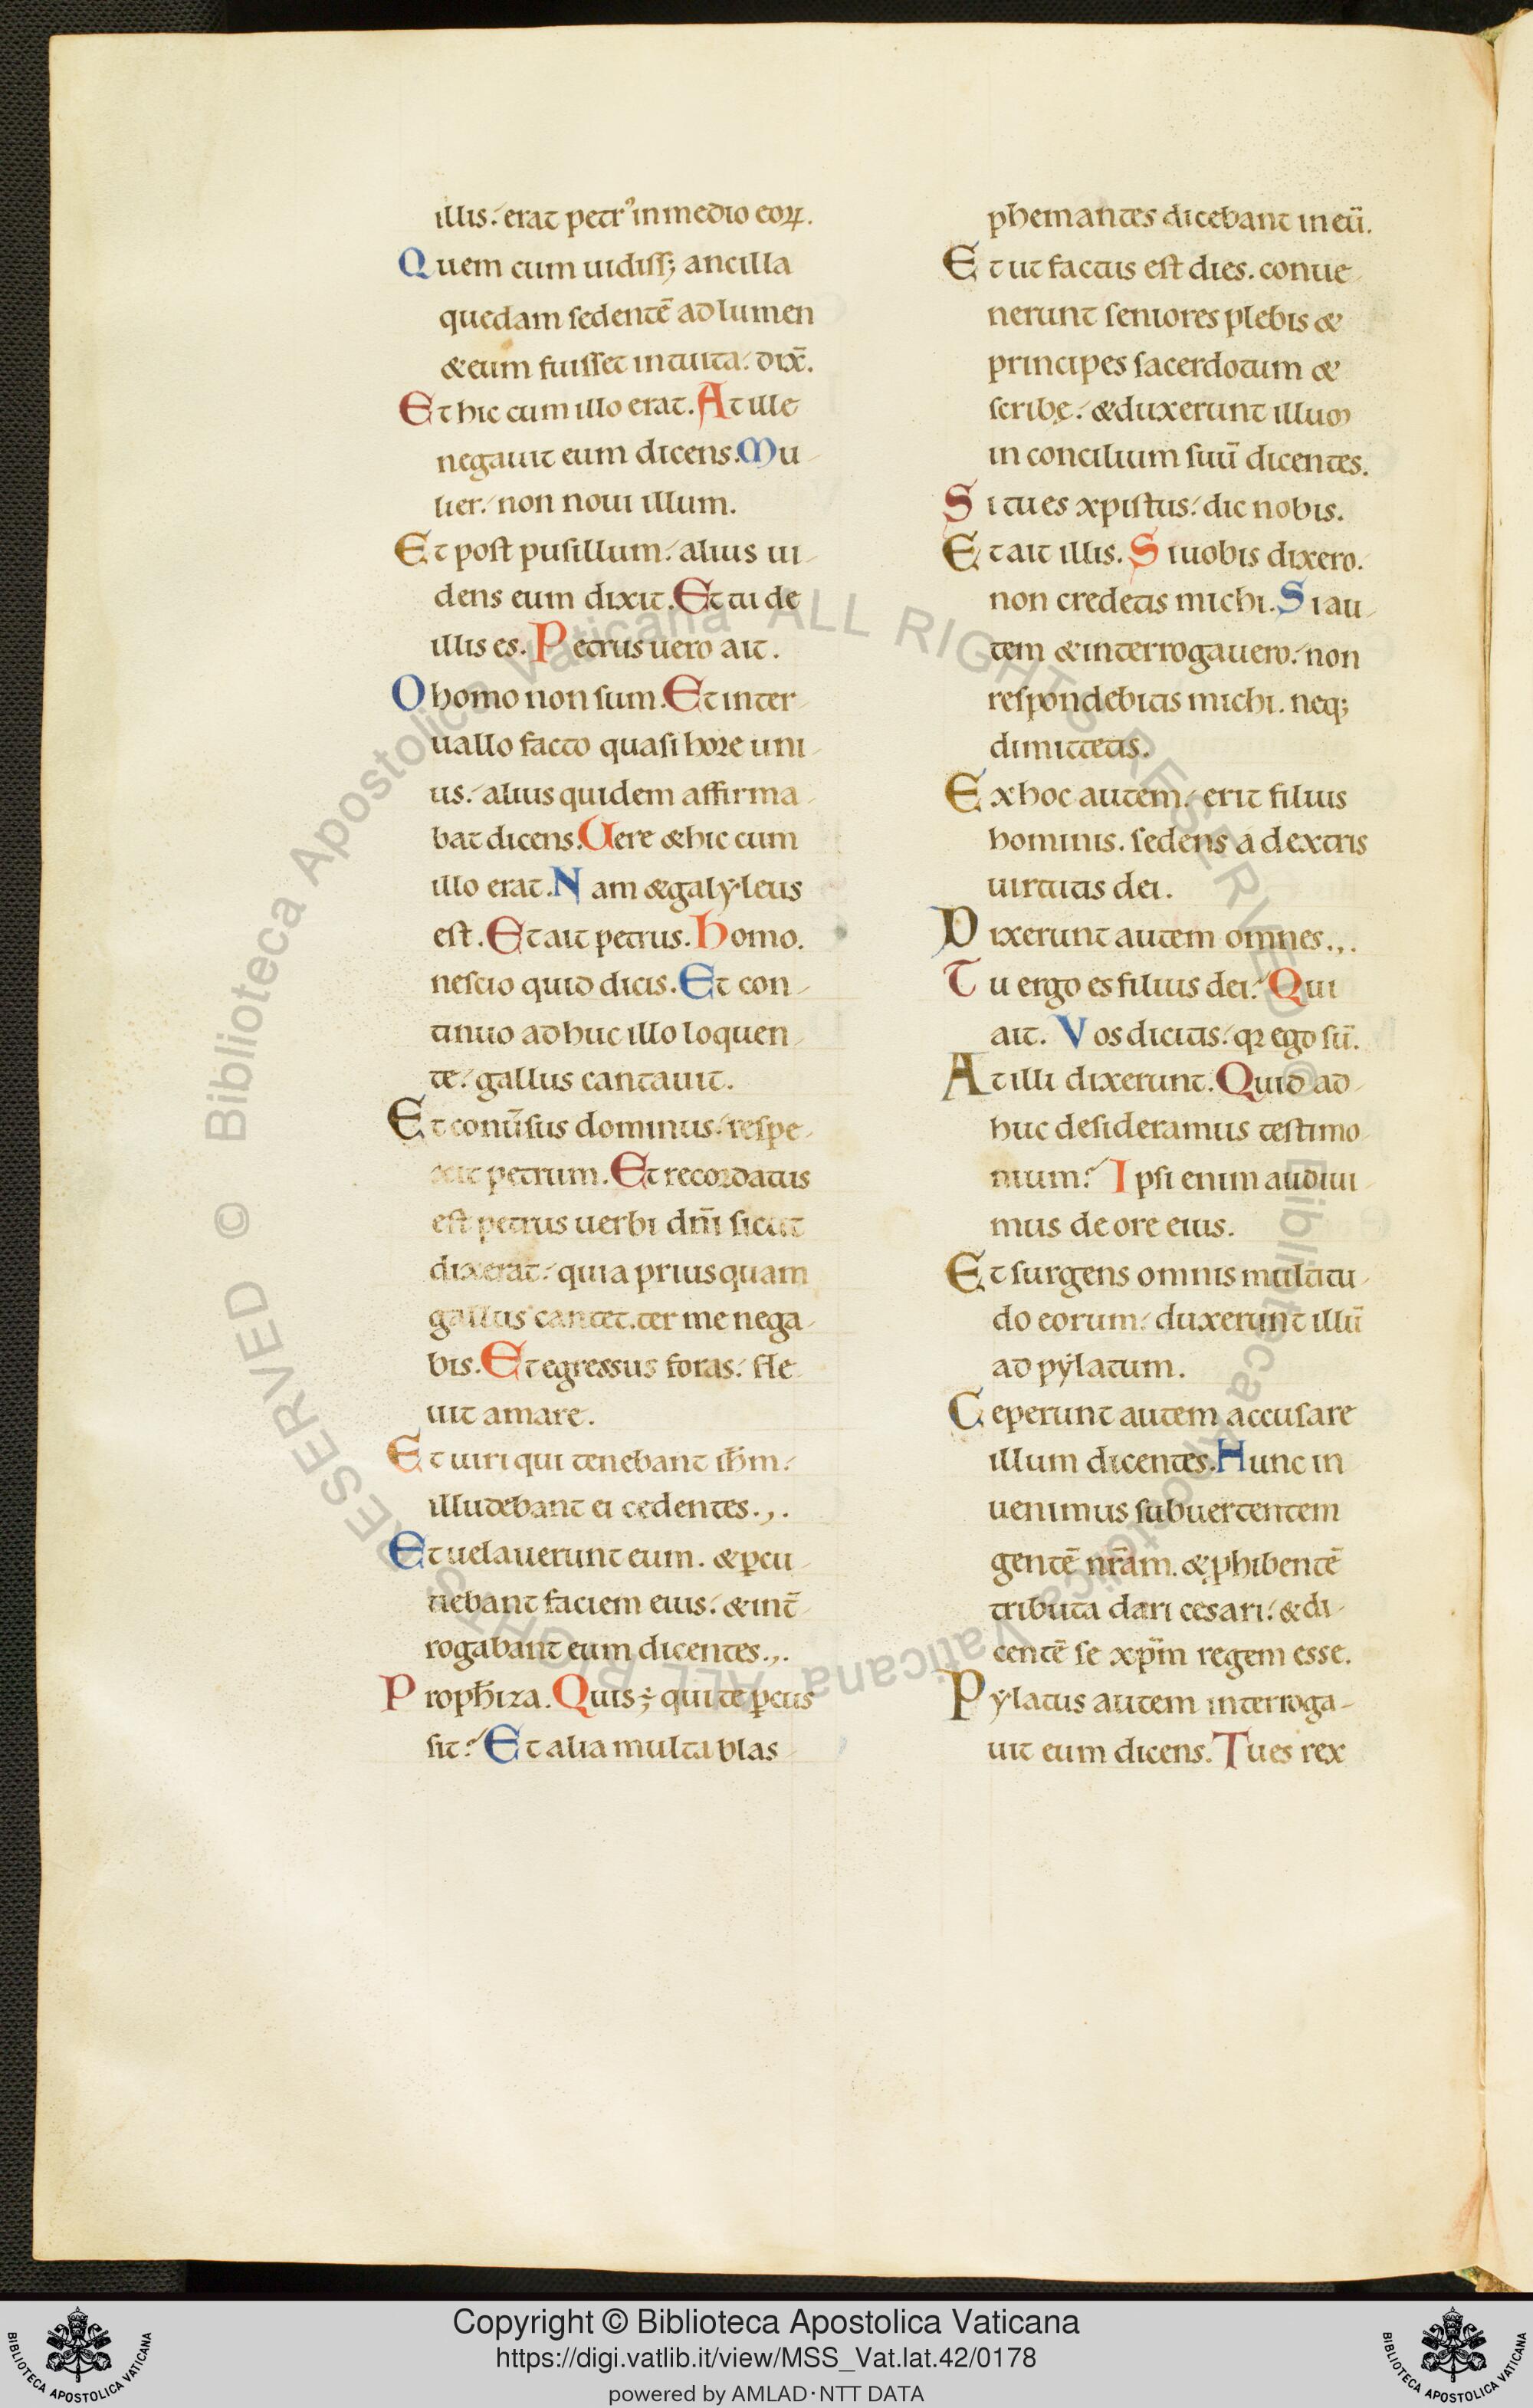 illis. erat petr᾽ in medio eoꝝ.
Quem cum uidiss; ancilla
quedam sedentē ad lumen
& eum fuisset intuita. dix̄.
Et hic cum illo erat. At ille
negauit eum dicens. Mu-
lier. non noui illum.
Et post pusillum. alius ui-
dens eum dixit. Et tu de
illis es. Petrus uero ait.
O homo non sum. Et inter-
uallo facto quasi hore uni-
us. alius quidem affirma-
bat dicens. Uere & hic cum
illo erat. Nam & galyleus
est. Et ait petrus. Homo.
nescio quid dicis. Et con-
tinuo adhuc illo loquen-
te. gallus cantauit.
Et conūsus dominus. respe-
xit petrum. Et recordatus
est petrus uerbi dm̄i sicut
dixerat. quia priusquam
gallus cantet. ter me nega-
bis. Et egressus foras. fle-
uit amare.
Et uiri qui tenebant ih̄m.
illudebant ei cedentes.,.
Et uelauerunt eum. & ꝑcu-
tiebant faciem eius. & int̄-
rogabant eum dicentes.,.
Proph̄iza. Quis ÷ qui te ꝑcus
sit? Et alia multa blas-
phemantes dicebant in eū.
Et ut factus est dies. conue-
nerunt seniores plebis &
principes sacerdotum &
scribę. & duxerunt illum
in concilium suū dicentes.
Si tu es xpistus. dic nobis.
Et ait illis. Si uobis dixero.
non credetis michi. Si au-
tem & interrogauero. non
respondebitis michi. neq;
dimittetis.
Ex hoc autem. erit filius
hominis. sedens a dextris
uirtutis dei.
Dixerunt autem omnes.,.
Tu ergo es filius dei? Qui
ait. Vos dicitis. qꝛ ego sū.
At illi dixerunt. Quid ad-
huc desideramus testimo-
nium? Ipsi enim audiui-
mus de ore eius.
Et surgens omnis multitu-
do eorum. duxerunt illū
ad pẏlatum.
Ceperunt autem accusare
illum dicentes. Hunc in
uenimus subuertentem
gentē nr̄am. & ꝓhibentē
tributa dari cesari. & di-
centē se xp̄m regem esse.
Pẏlatus autem interroga-
uit eum dicens. Tu es rex
Copyright © Biblioteca Apostolica Vaticana
https://digi.vatlib.it/view/MSS_Vat.lat.42/0178
powered by AMLAD·NTT DATA
BIBLIOTECA APOSTOLICA VATICANA
BIBLIOTECA APOSTOLICA VATICANA
© Biblioteca Apostolica Vaticana ALL RIGHTS RESERVED
© Biblioteca Apostolica Vaticana ALL RIGHTS RESERVED